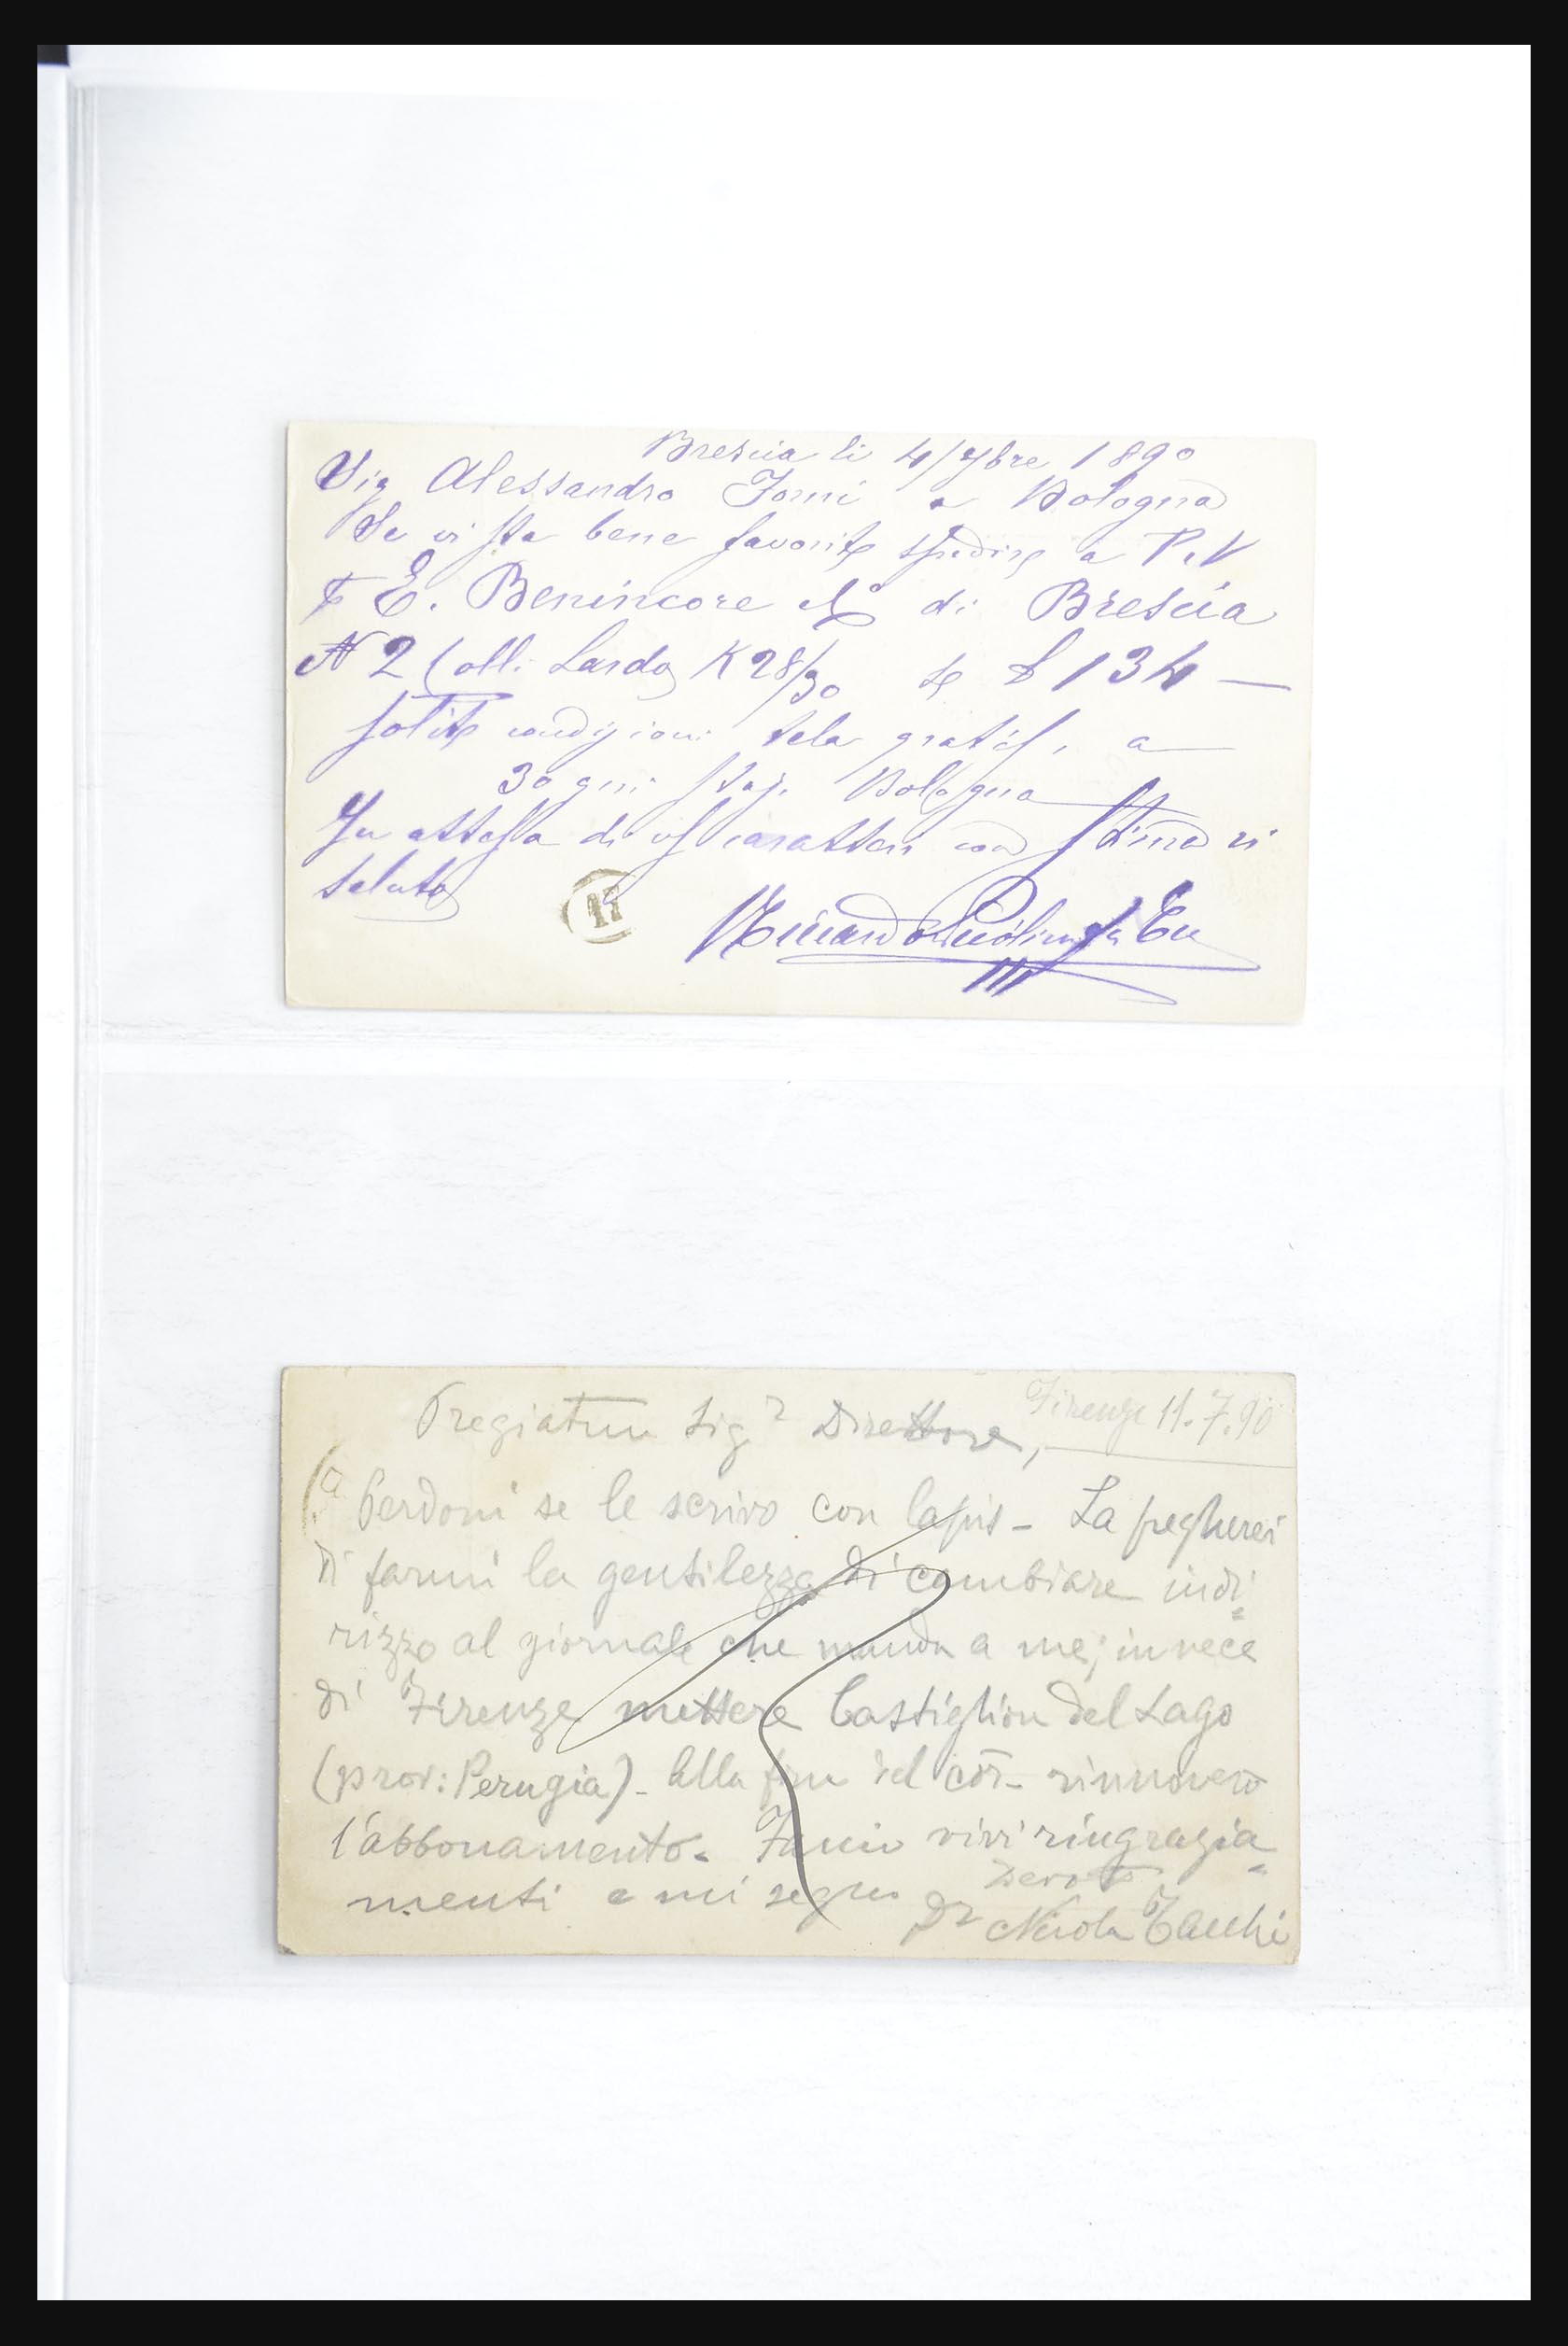 Brescia li 4/7bre 1890
Sig Alessandro Forni a Bologna
Se vi sta bene favorite spedire a P. V
E. Benincore di Brescia
N 2 Colli Lardo K 28/30 L 134 —
solite condizioni tela gratis, a
30 gni Bologna
In attesa di con stima vi
saluto
17
Firenze 11.7.90
Sigr Direttore,
Perdoni se le scrivo con lapis – La pregherei
di farmi la gentilezza di cambiare indi=
rizzo al giornale che manda a me; invece
di Firenze mettere Castiglion del Lago
(prov: Perugia) – Alla fine del cor– rinnoverò
l'abbonamento. vivi ringrazia=
menti e mi segno
devoto
Dr Nicola Tacchi